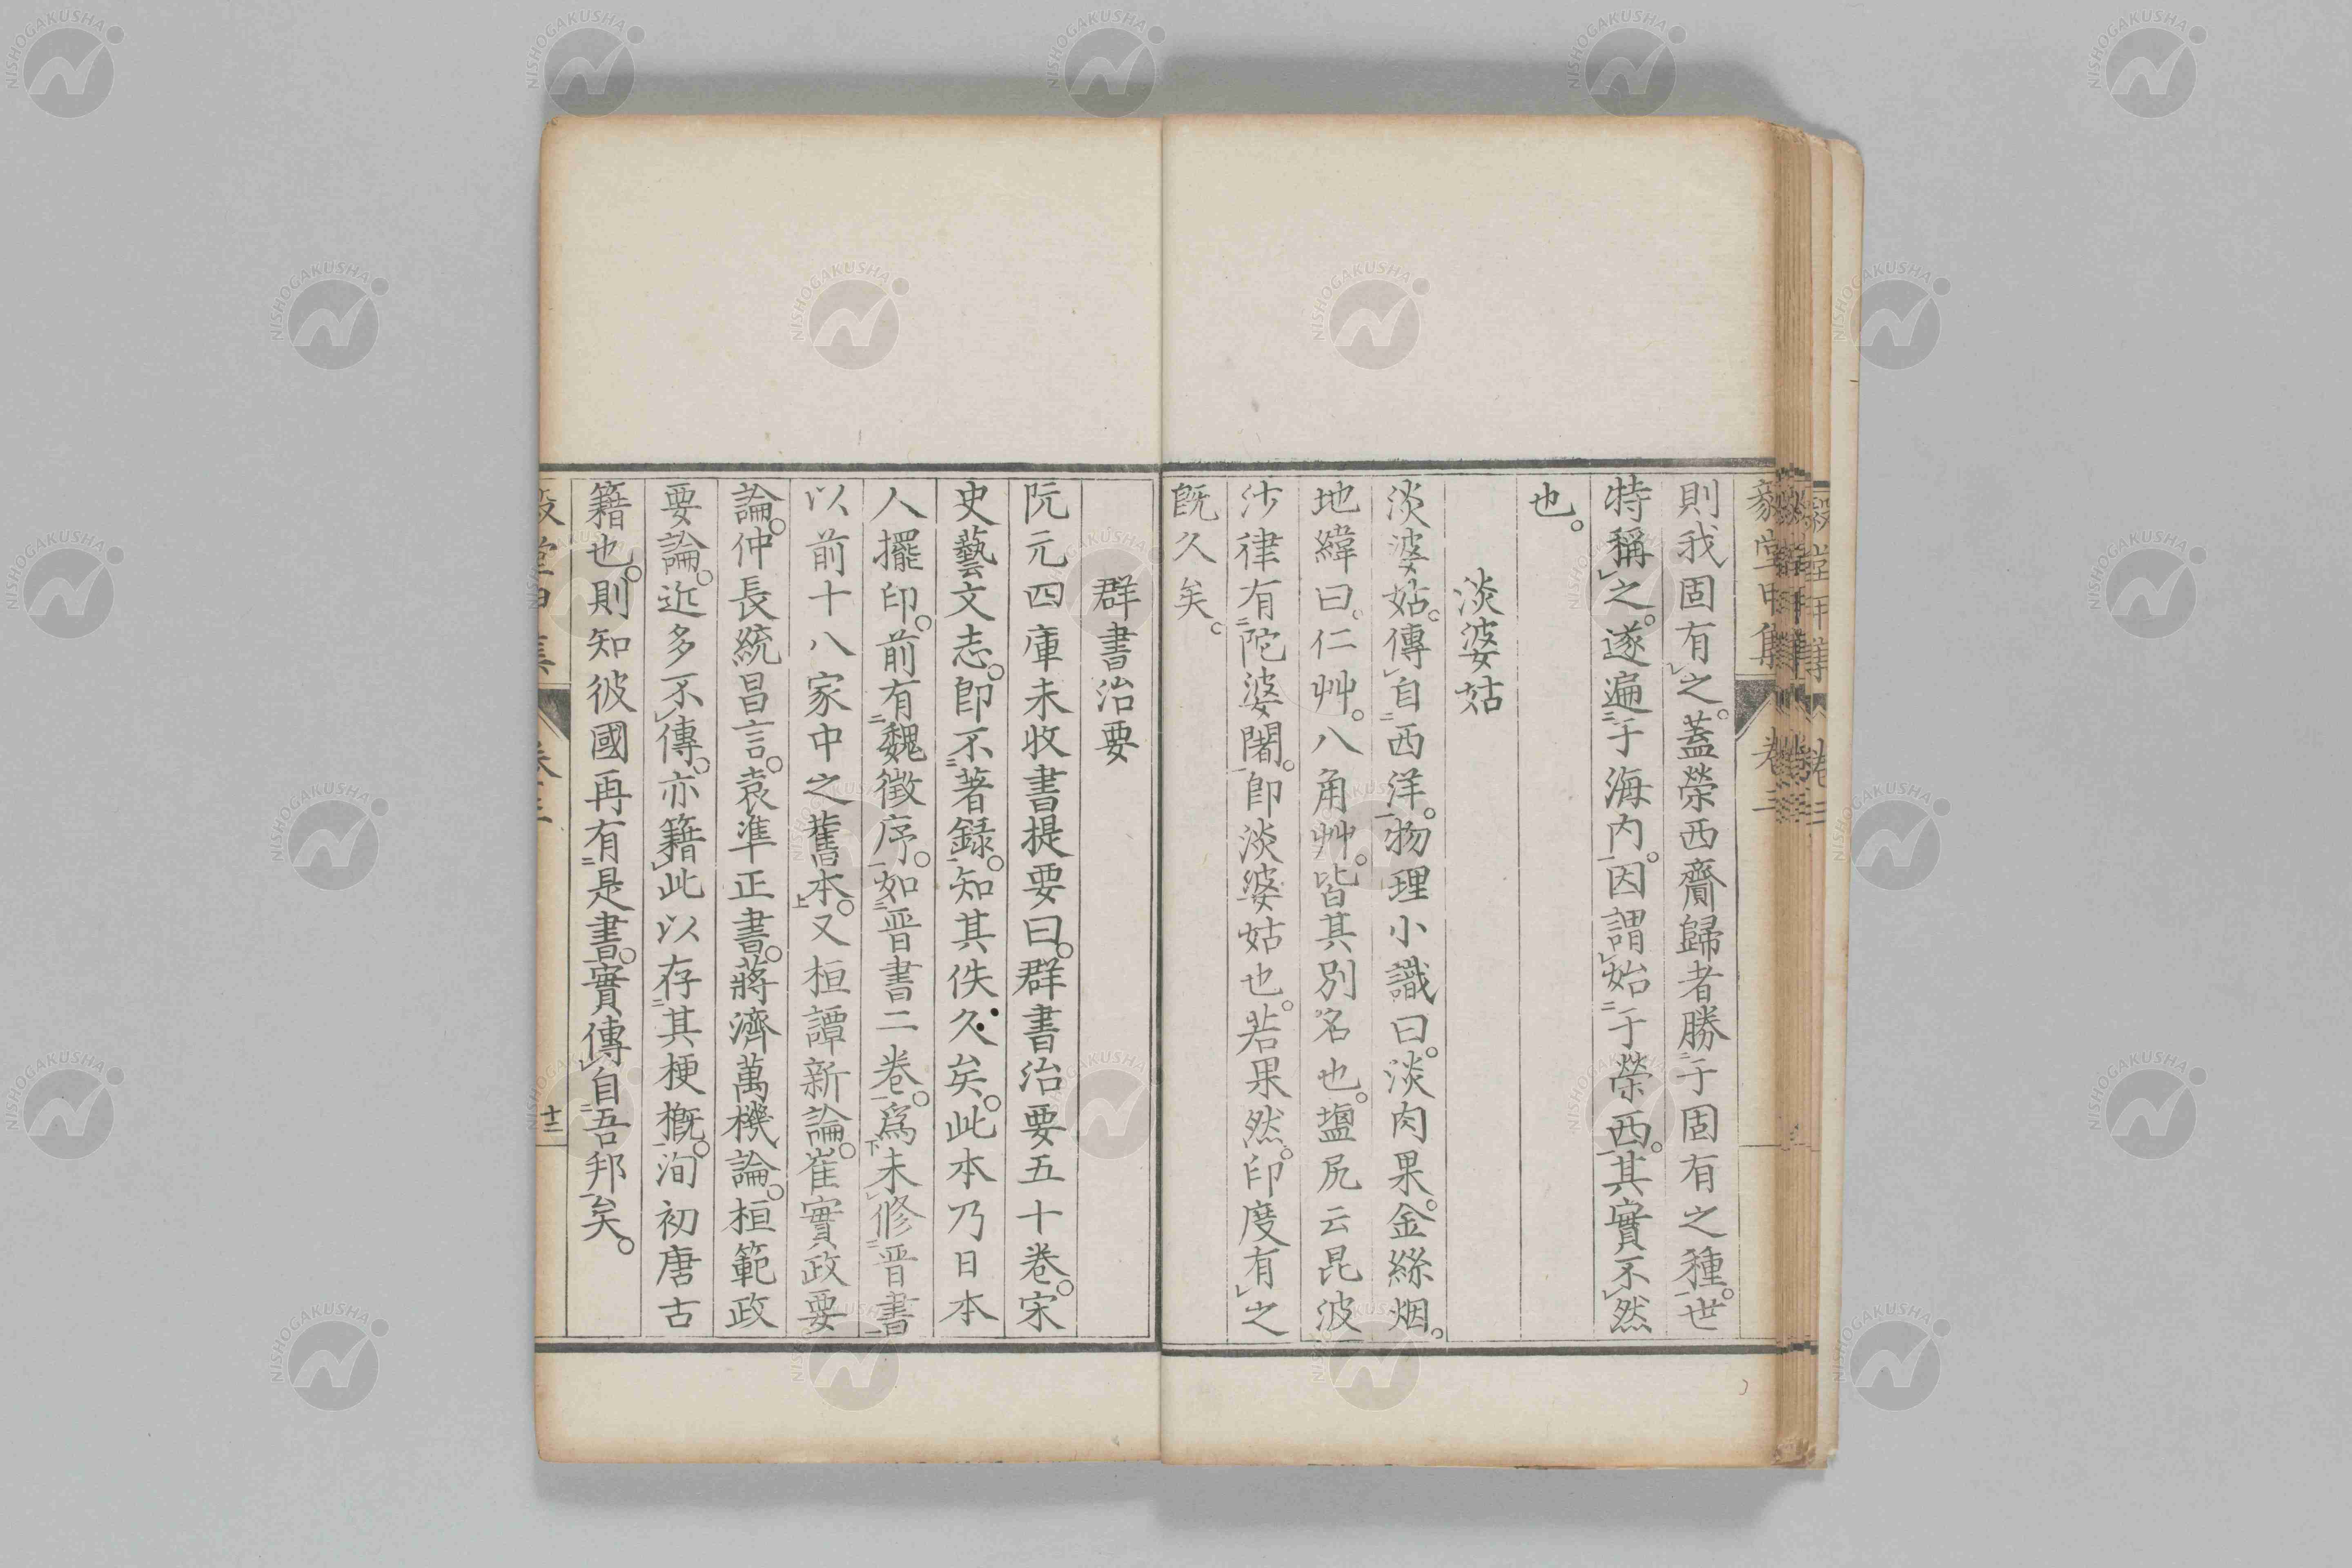 則我固有之。蓋榮西齎歸者勝于固有之種。世
特稱之。遂遍于海内。因謂始于榮西。其實不然
也。
淡婆姑
淡婆姑。傳自西洋。物理小識曰。淡肉果。金絲烟。
地緯曰。仁艸。八角艸。皆其別名也。鹽尻云昆波
沙律有陀婆闍。卽淡婆姑也。若果然。印度有之
旣久矣。
群書治要
阮元四庫未收書提要曰。群書治要五十卷。宋
史藝文志。卽不著録。知其佚久矣。此本乃日本
人擺印。前有魏徵序。如晋書二卷。爲未修晋書
以前十八家中之舊本。又桓譚新論。崔實政要
論。仲長統昌言。袁準正書。蔣濟萬機論。桓範政
要論。近多不傳。亦籍此以存其梗概。洵初唐古
籍也。則知彼國再有是書。實傳自吾邦矣。
十二
NISHOGAKUSHA